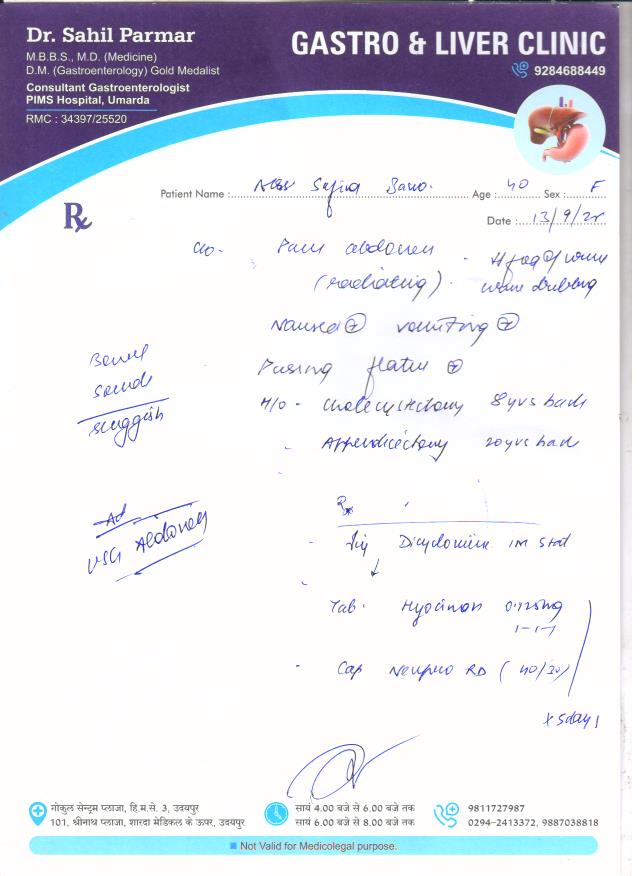 Dr. Sahil Parmar
M.B.B.S., M.D. (Medicine)
D.M. (Gastroenterology) Gold Medalist
Consultant Gastroenterologist
PIMS Hospital, Umarda
RMC : 34397/25520
GASTRO & LIVER CLINIC
9284688449
Patient Name : Safira Bano. Age : 40 Sex : F
Rx
Date : 13/9/25
c/o - Pain abdomen
(radiating).
Nausea + vomiting +
Passing flatus +
H/O - Cholecystectomy 8yrs back
- Appendicectomy 20yrs back
Bowel
sounds
sluggish
Ad
USG Abdomen
Rx
- Inj Dicyclomine IM stat
↓
Tab. Hyocimax 0.125mg
1-1-1
- Cap RD (40/30)
x 5days
गोकुल सेन्ट्रम प्लाजा, हि.म.से. 3, उदयपुर
101, श्रीनाथ प्लाजा, शारदा मेडिकल के ऊपर, उदयपुर
सायं 4.00 बजे से 6.00 बजे तक
सायं 6.00 बजे से 8.00 बजे तक
9811727987
0294-2413372, 9887038818
Not Valid for Medicolegal purpose.